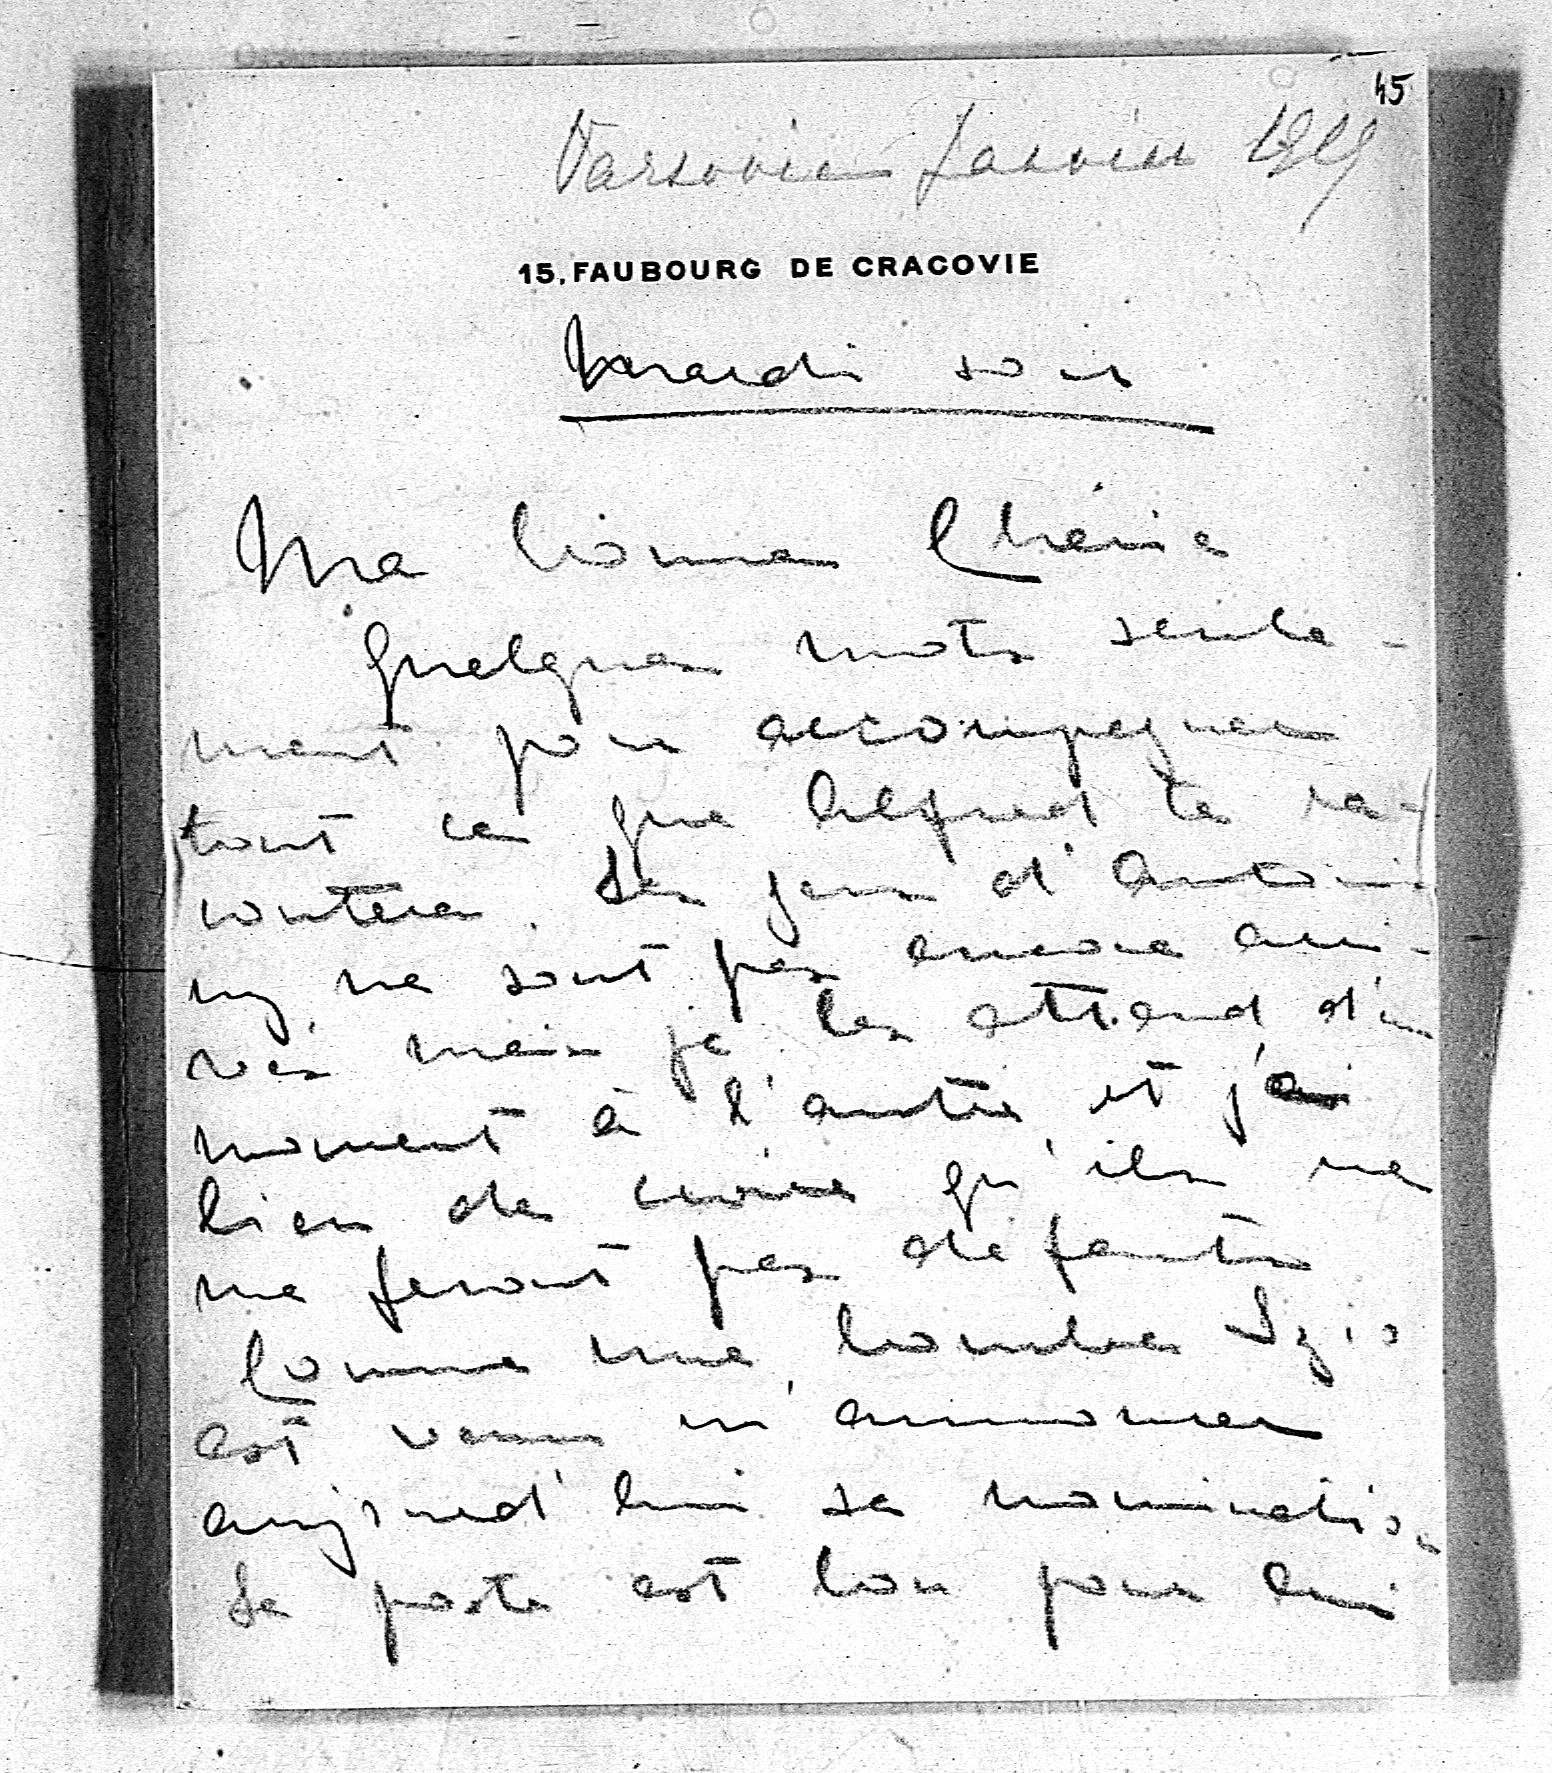 45
Varsovie Janvier 1919
15, FAUBOURG DE CRACOVIE
Mardi soir
Ma bonne Chérie
Quelques mots seule-
ment pour accompagner
tout ce que Alfred te ra-
contera. Les gens d'Antoni-
ny ne sont pas encore arri-
vés mais je les attend d'un
moment à l'autre et j'ai
lieu de croire qu'ils ne
me feront pas défaut
Comme une bombe
est venu m'annoncer
aujourd'hui sa nomination
Le poste est bon pour lui